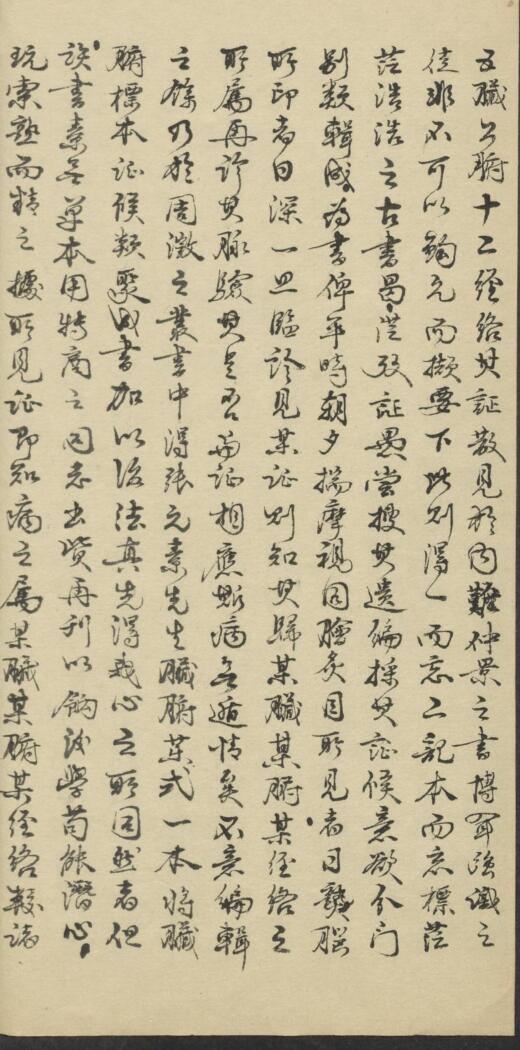 五臟六腑十二經絡其証散見於內難仲景之書博聞強識之
徒非不可以鉤元而擷要下此則得一而忘二記本而忘標茫
茫浩浩之古書曷從攷証愚嘗搜其遺編採其証候意欲分門
別類輯成為書俾平時朝夕揣摩視同膾炙目所見者日熟腦
所印者日深一旦臨診見某証則知其歸某臟某腑某經絡之
所屬再診其脉驗其是否與証相應斯病無遁情矣不意編輯
之餘乃於周澂之叢書中得張元素先生臟腑藥式一本將臟
腑標本证候類聚成書加以治法真先得我心之所同然者但
該書素無單本用特商之同志出貲再刊以餉後學苟能潛心
玩索熟而精之據所見証即知病之屬某臟某腑某經絡較諸